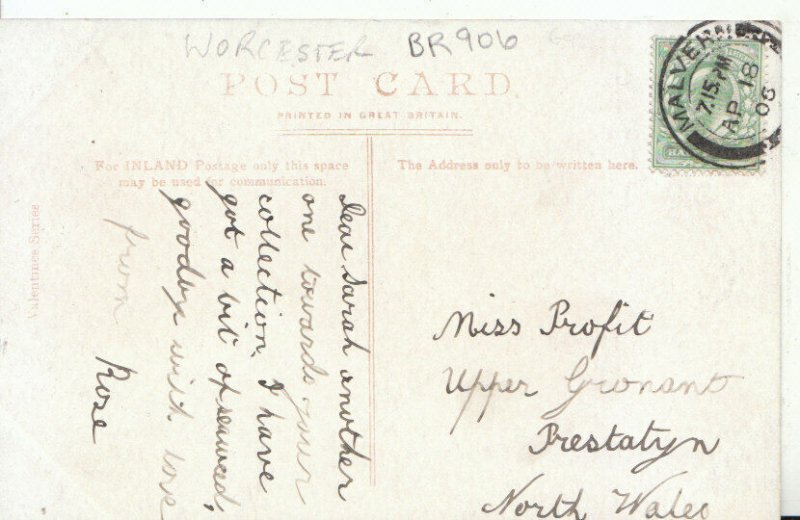 WORCESTER BR906
POST CARD.
PRINTED IN GREAT BRITAIN.
MALVERN
7.15 PM
AP 18
06
For INLAND Postage only this space
may be used for communication.
The Address only to be written here.
Valentines Series
Dear Sarah another
one towards your
collection. I have
got a bit of seaweed,
goodbye with love
from
Rose
Miss Profit
Upper Gronant
Prestatyn
North Wales